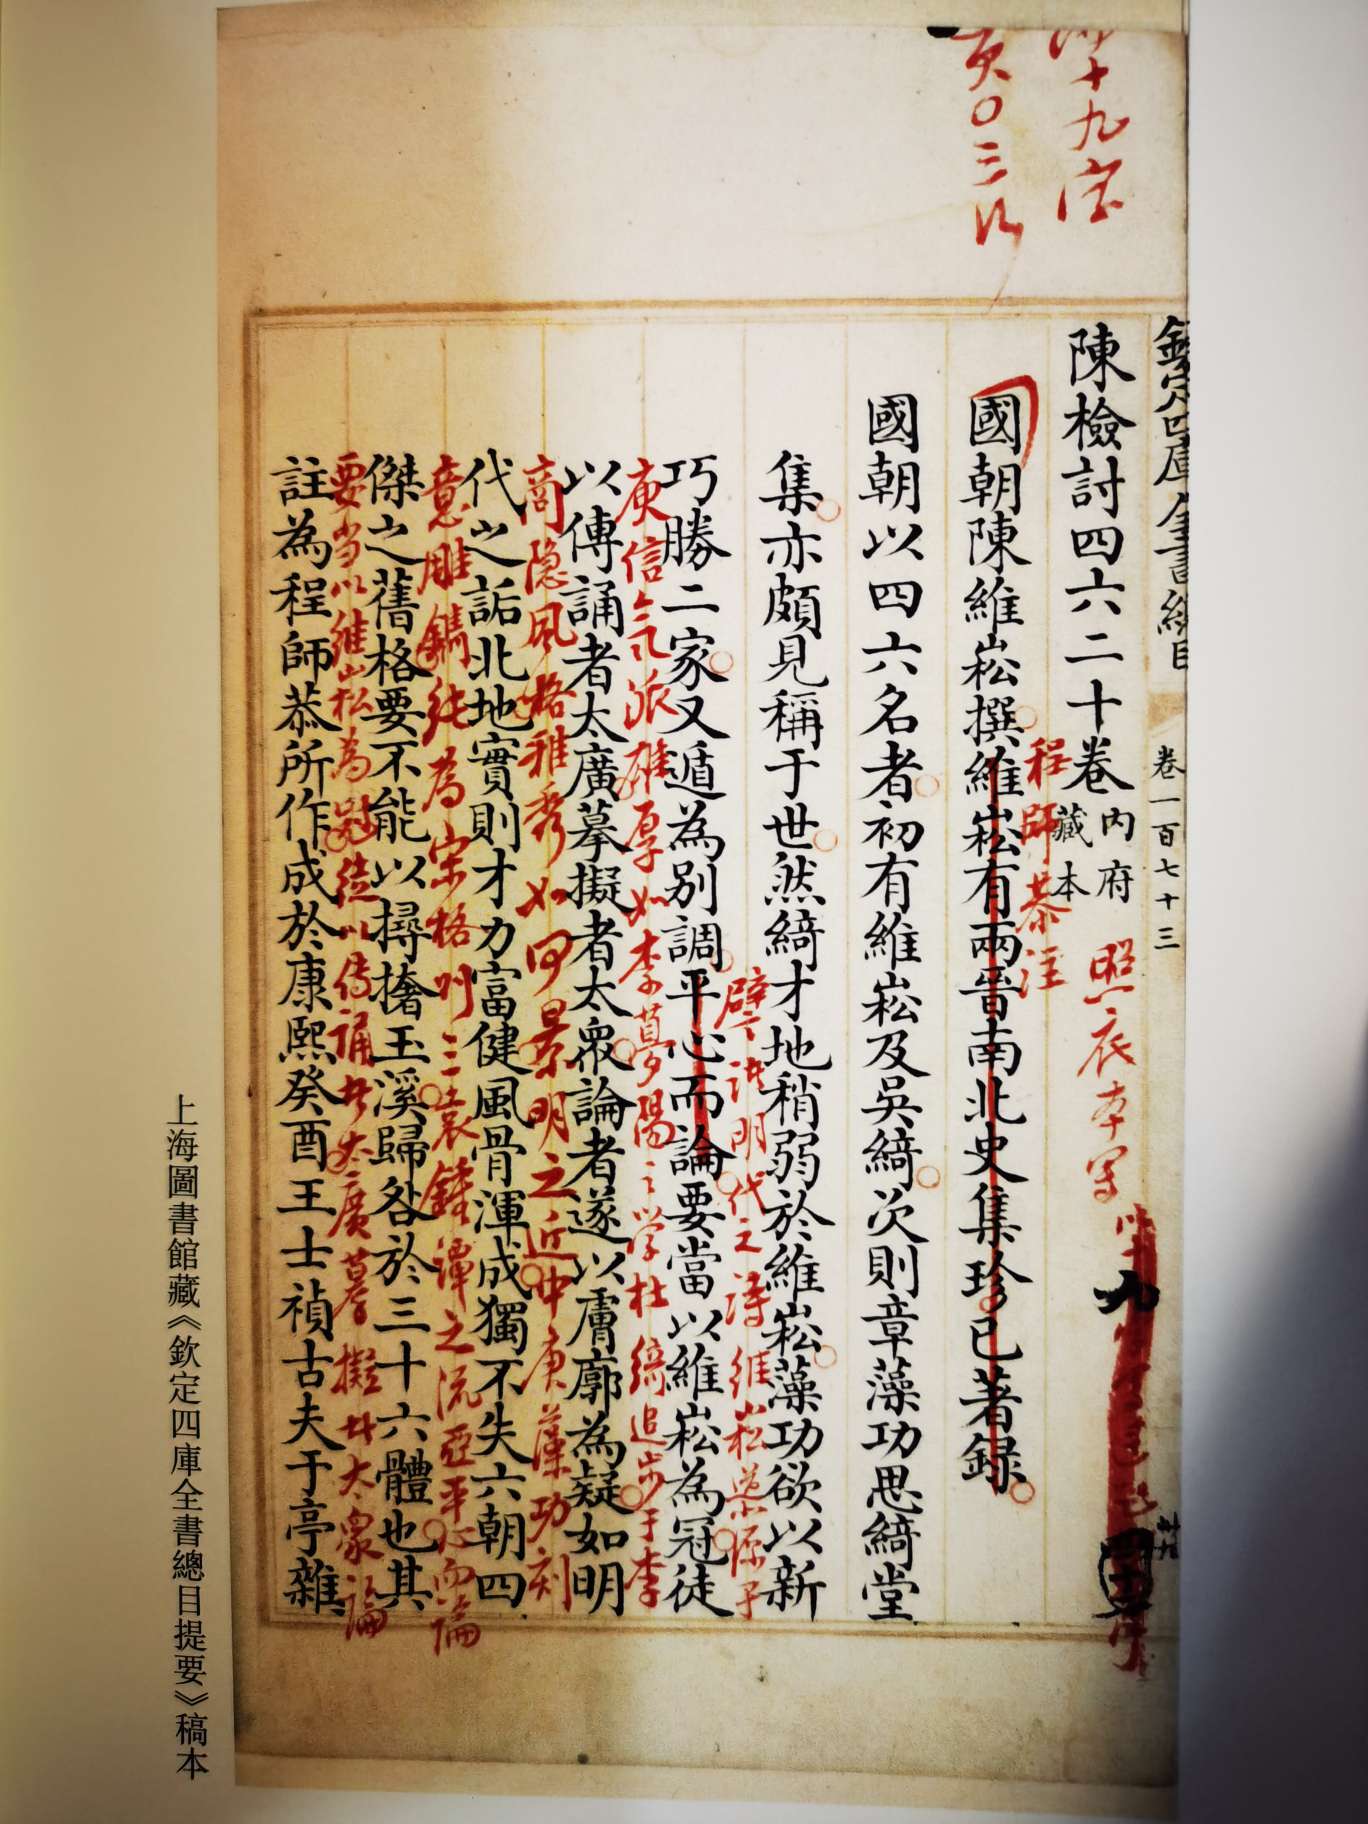 欽定四庫全書總目 卷一百七十三
陳檢討四六二十卷 內府藏本
照底本寫
程師恭注
國朝陳維崧撰維崧有兩晉南北史集珍已著録
國朝以四六名者初有維崧及吳綺次則章藻功思綺堂
集亦頗見稱于世然綺才地稍弱於維崧藻功欲以新
譬諸明代之詩維崧導源于
巧勝二家又遁為別調平心而論要當以維崧為冠徒
庾信氣派雄厚如李夢陽之學杜綺追步于李
以傳誦者太廣摹擬者太眾論者遂以膚廓為疑如明
商隱風格雅秀如何景明之近中唐藻功刻
代之詬北地實則才力富健風骨渾成獨不失六朝四
意雕鐫純為宋格則三袁鍾譚之流亞平心而論
傑之舊格要不能以撏撦玉溪歸咎於三十六體也其
要當以維崧為冠徒以傳誦者太廣摹擬者太眾論
註為程師恭所作成於康熙癸酉王士禎古夫于亭雜
上海圖書館藏《欽定四庫全書總目提要》稿本